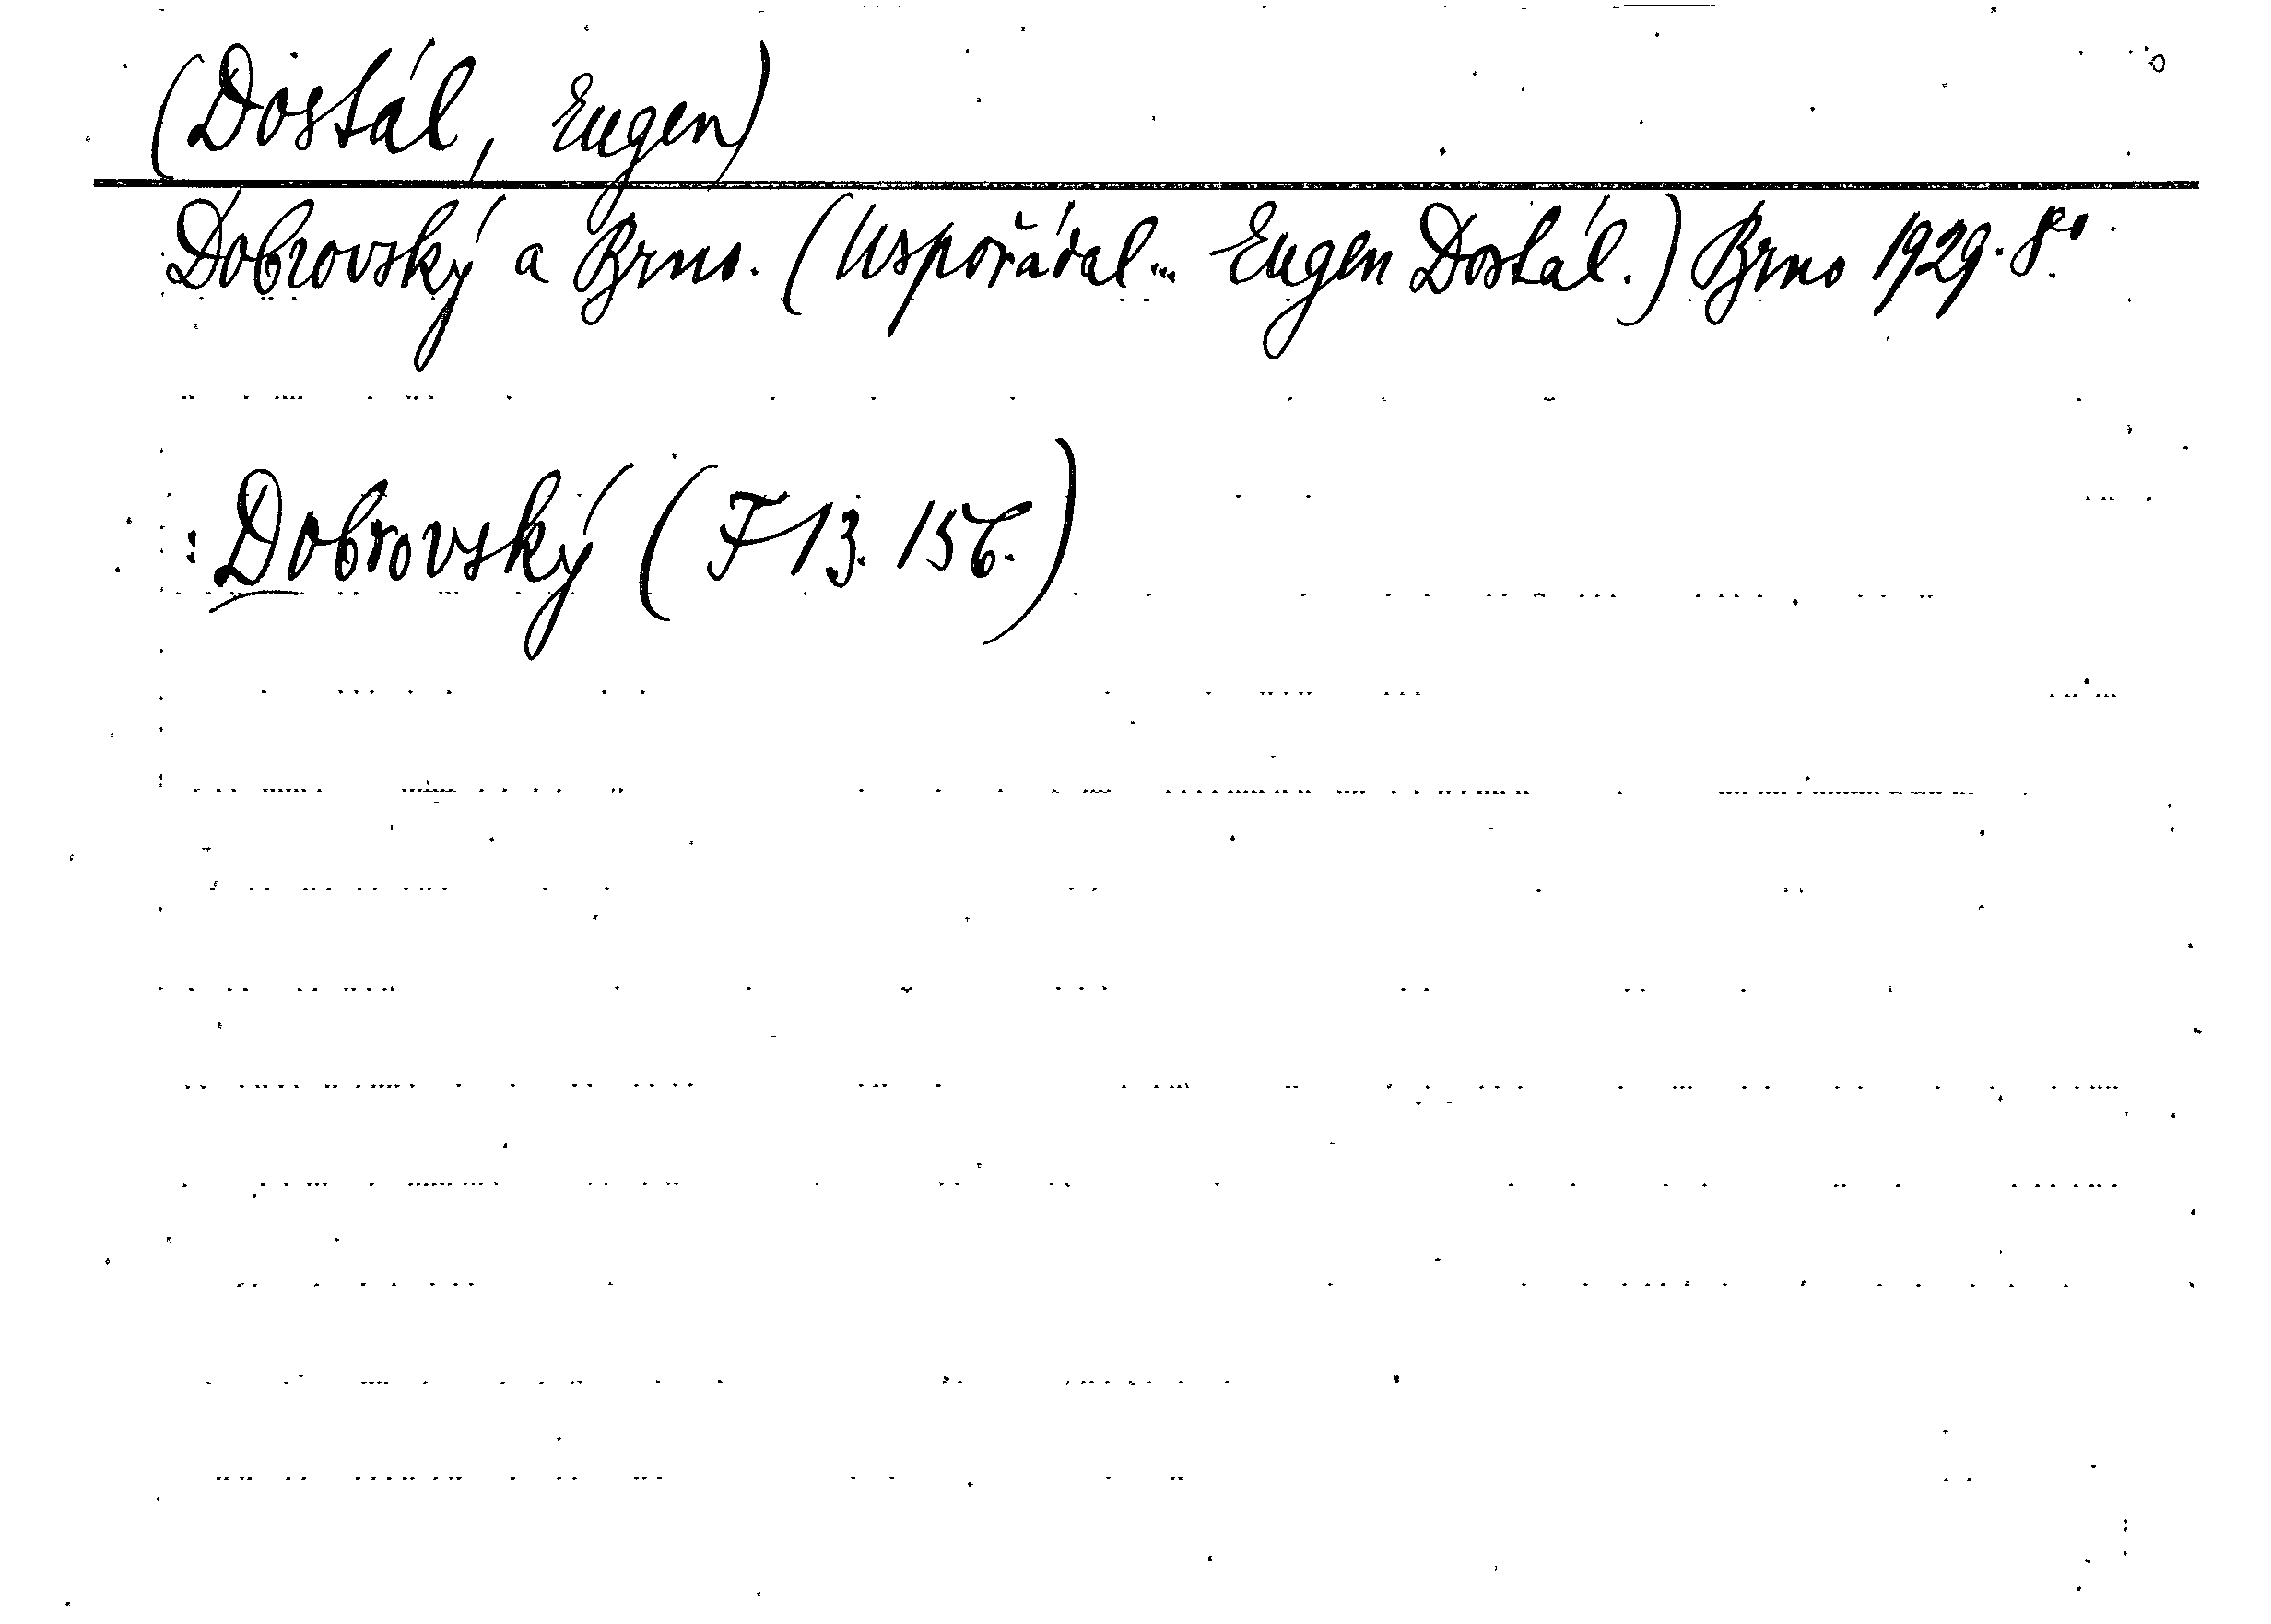 (Dostál, Eugen)
Dobrovský a Brno. (Uspořádal... Eugen Dostál.) Brno 1929. 8°.
: Dobrovský (F 13. 156.)